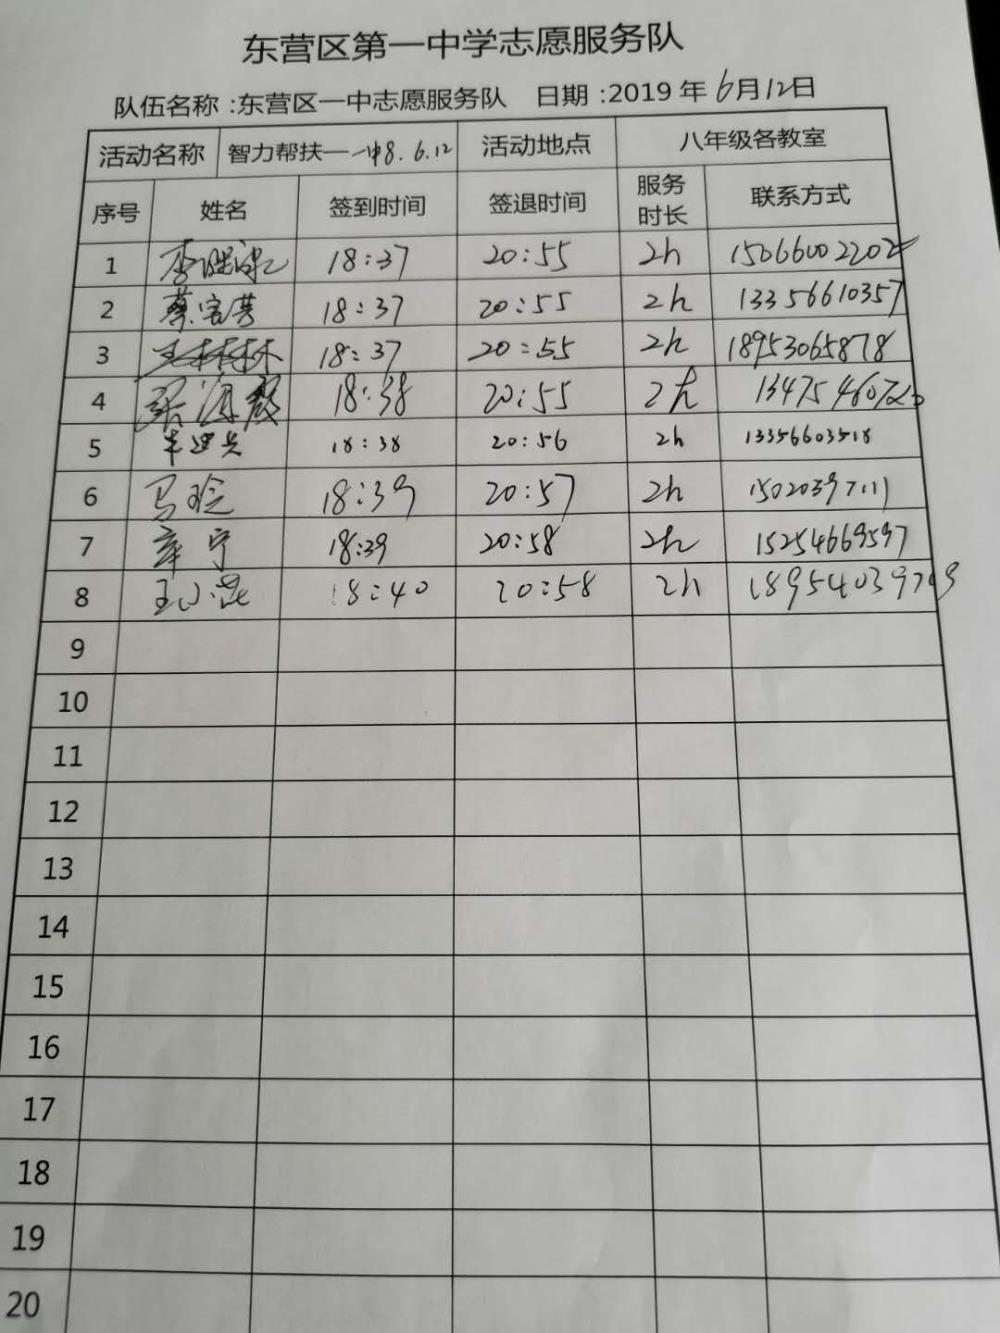 东营区第一中学志愿服务队
队伍名称:东营区一中志愿服务队 日期:2019年6月12日
活动名称 智力帮扶—一中8.6.12 活动地点 八年级各教室
序号 姓名 签到时间 签退时间 服务时长 联系方式
1 18:37 20:55 2h
2 18:37 20:55 2h 13356610357
3 王林林 18:37 20:55 2h 18953065878
4 18:38 20:55 2h
5 18:38 20:56 2h 13356603518
6 18:39 20:57 2h 15020397111
7 章宁 18:39 20:58 2h 15254669597
8 18:40 20:58 2h
9
10
11
12
13
14
15
16
17
18
19
20